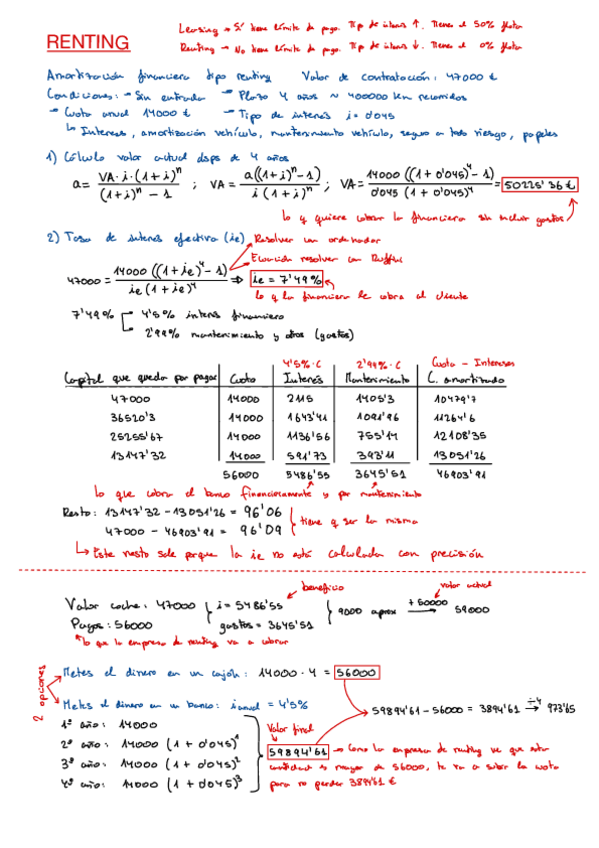 RENTING
Leasing → Sí tiene límite de pago. Tip de interés ↑. Tienes el 50% flota
Renting → No tiene límite de pago. Tip de interés ↓. Tienes el 0% flota
Amortización financiera tipo renting Valor de contratación: 47000 €
Condiciones: - Sin entrada - Plazo 4 años ~ 400000 km recorridos
- Cuota anual 14000 € - Tipo de interés i = 0'045
↳ Intereses, amortización vehículo, mantenimiento vehículo, seguro a todo riesgo, papeles
1) Cálculo valor actual dsps de 4 años
a = VA·i·(1+i)^n / (1+i)^n - 1 ; VA = a((1+i)^n - 1) / i(1+i)^n ; VA = 14000((1+0'045)^4 - 1) / 0'045(1+0'045)^4 = 50225'36 €
lo q quiere cobrar la financiera sin incluir gastos
2) Tasa de interés efectiva (ie) Resolver con ordenador
Ecuación resolver con Ruffini
47000 = 14000((1+ie)^4 - 1) / ie(1+ie)^4 ⇒ ie = 7'49%
lo q la financiera le cobra al cliente
7'49% 4'5% interés financiero
2'99% mantenimiento y otros (gastos)
4'5%·C 2'99%·C Cuota - Intereses
Capital que queda por pagar Cuota Interés Mantenimiento C. amortizado
47000 14000 2115 1405'3 10479'7
36520'3 14000 1643'41 1091'96 11264'6
25255'67 14000 1136'56 755'14 12108'35
13147'32 14000 591'73 393'11 13051'26
56000 5486'55 3645'51 46903'91
lo que cobra el banco financieramente y por mantenimiento
Resto: 13147'32 - 13051'26 = 96'06
47000 - 46903'91 = 96'09
tiene q ser la misma
↳ Este resto sale porque la ie no está calculada con precisión
beneficio valor actual
Valor coche: 47000 i = 5486'55 9000 aprox +50000 → 59000
Pagos: 56000 gastos = 3645'51
lo que la empresa de renting va a cobrar
2 opciones
Metes el dinero en un cajón: 14000·4 = 56000
Metes el dinero en un banco: i anual = 4'5%
59894'61 - 56000 = 3894'61 ÷4 → 973'65
1º año: 14000
2º año: 14000 (1+0'045)^1
3º año: 14000 (1+0'045)^2
4º año: 14000 (1+0'045)^3
Valor final
59894'61 → Como la empresa de renting ve que esta
cantidad es mayor de 56000, te va a subir la cuota
para no perder 3894'61 €